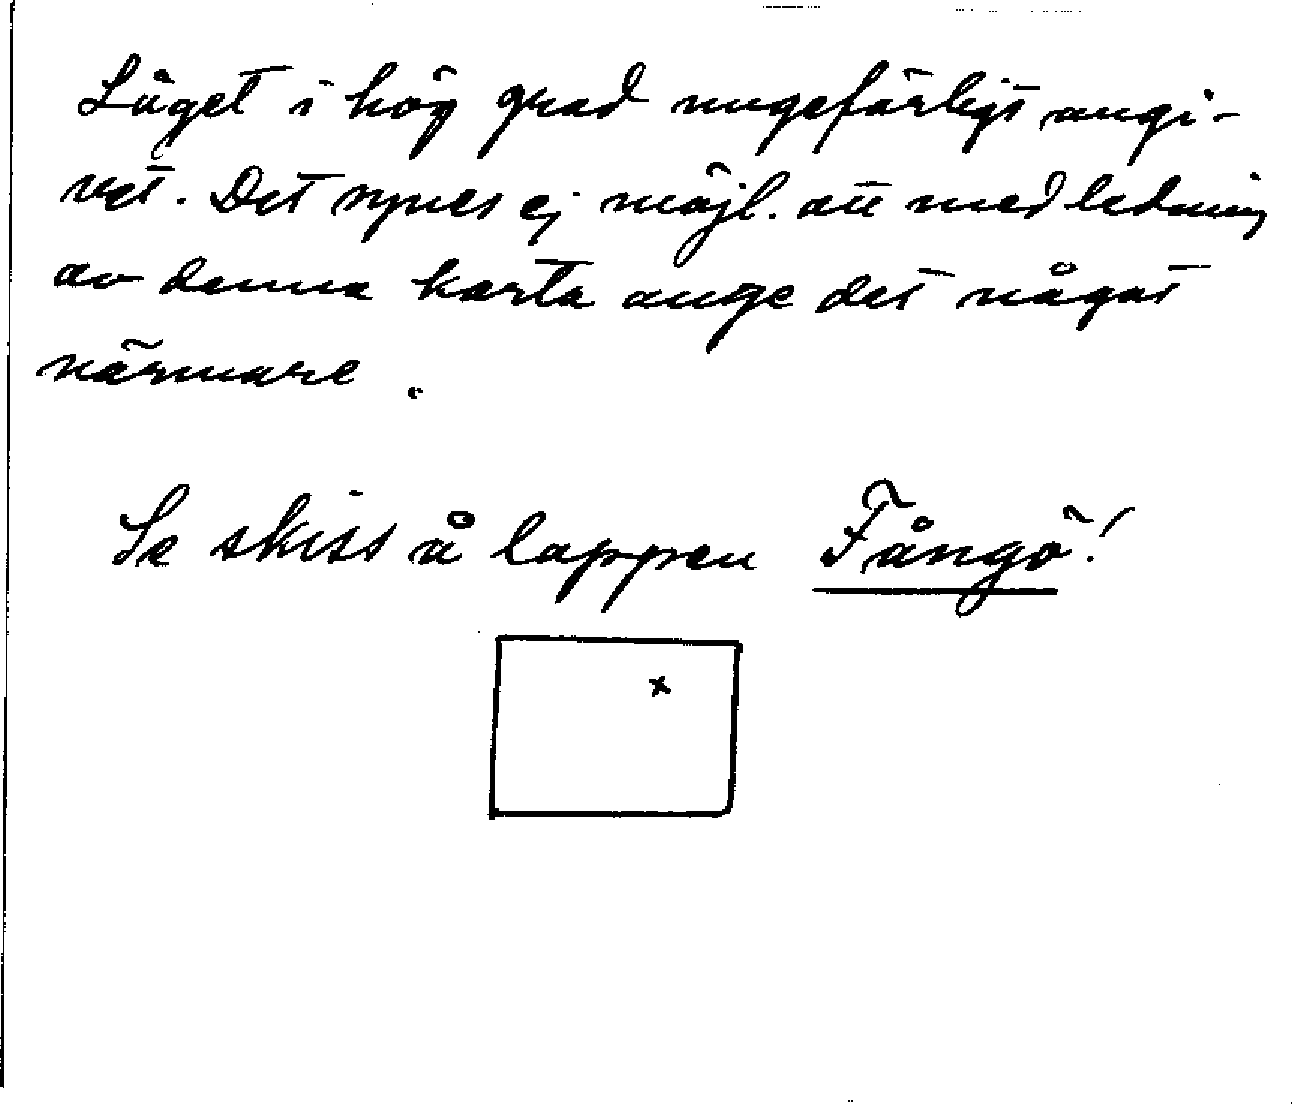 Läget i hög grad ungefärligt angi-
vet. Det synes ej möjl. att med ledning
av denna karta ange det något
närmare.
Se skiss å lappen Fångö!
x